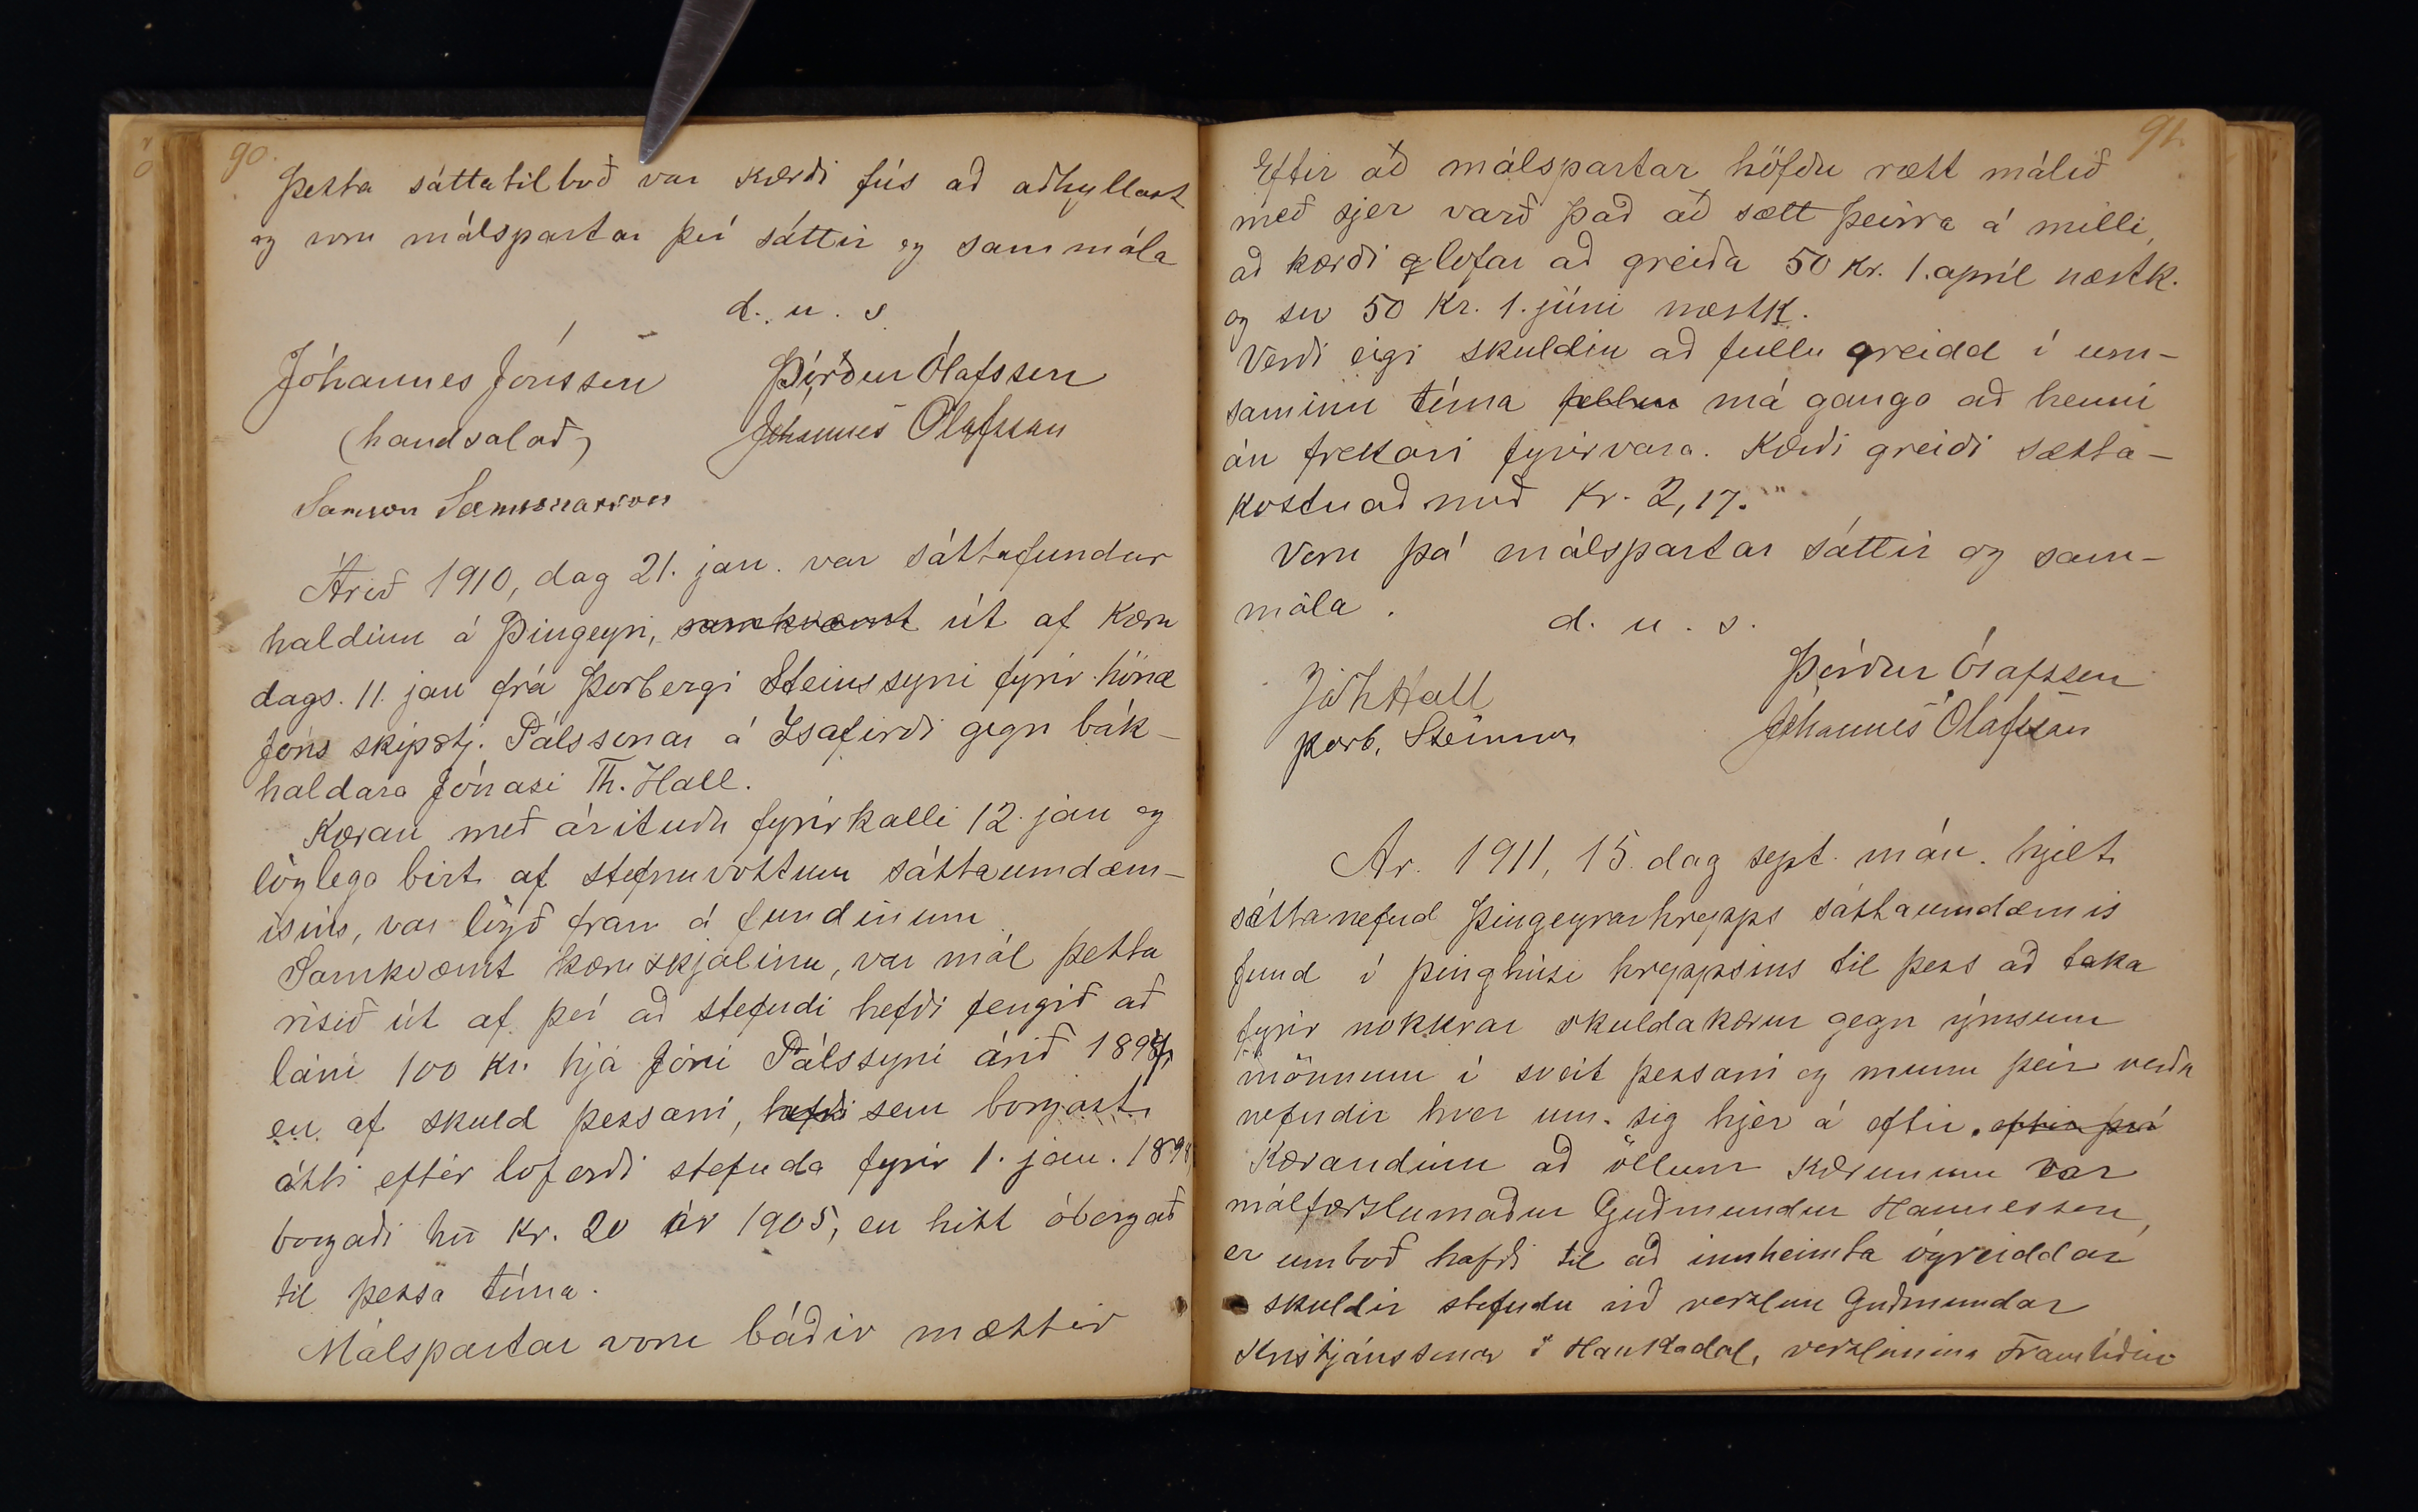 90.
Þetta sáttatilboð var kærði fús að aðhyllast
og voru málspartar því sáttir og sammála
d. u. s.
Jóhannes Jónsson Þórður Ólafsson
(handsalað) Jóhannes Ólafsson
Samson Samsonarson
Árið 1910, dag 21. jan. var sáttafundur
haldinn á Þingeyri, samkvæmt út af kæru
dags. 11. jan frá Þorbergi Steinssyni fyrir hönd
Jóns skipstj. Pálssonar á Ísafirði gegn bók-
haldara Jónasi Th. Hall.
Kæran með árituðu fyrirkalli 12. jan og
löglega birt af stefnuvottum sáttaumdæm-
isins, var lögð fram á fundinum
Samkvæmt kæruskjalinu, var mál þetta
risið út af því að stefndi hefði fengið að
láni 100 kr. hjá Jóni Pálssyni árið 1897,
en af skuld þessari, hefði sem borgast
átti eftir loforði stefnda fyrir 1. jan. 1898
borgaði hn̄ kr. 20 ár 1905, en hitt óborgað
til þessa tíma.
Málspartar voru báðir mættir
91.
Eftir að málspartar höfðu rætt málið
með sjer varð það að sætt þeirra á milli,
að kærði lofar að greiða 50 kr. 1. apríl næstk.
og sv 50 kr. 1. júni næstk.
Verði eigi skuldin að fullu greidd í um-
saminn tíma má ganga að henni
án frekari fyrirvara. Kærði greiði sátta-
kostnað með kr. 2,17."
Voru þá málspartar sáttir og sam-
mála.
d. u. s.
Þórður Ólafsson
JóhHall
Þorb. Steinsson Jóhannes Ólafsson
Ár. 1911, 15. dag sept. mán. hjelt
sáttanefnd Þingeyrarhrepps sáttaumdæmis
fund í þinghúsi hreppsins til þess að taka
fyrir nokkrar skuldakærur gegn ýmsum
mönnum í sveit þessari og munu þeir verða
nefndir hver um sig hjer á eftir. eftir því
Kærandinn að öllum kærunum var
málfærslumaður Guðmundur Hannesson,
er umboð hafði til að innheimta ógreiddar
skuldir stefndu við verzlun Guðmundar
Kristjánssonar í Haukadal, verzlunina Framtíðin